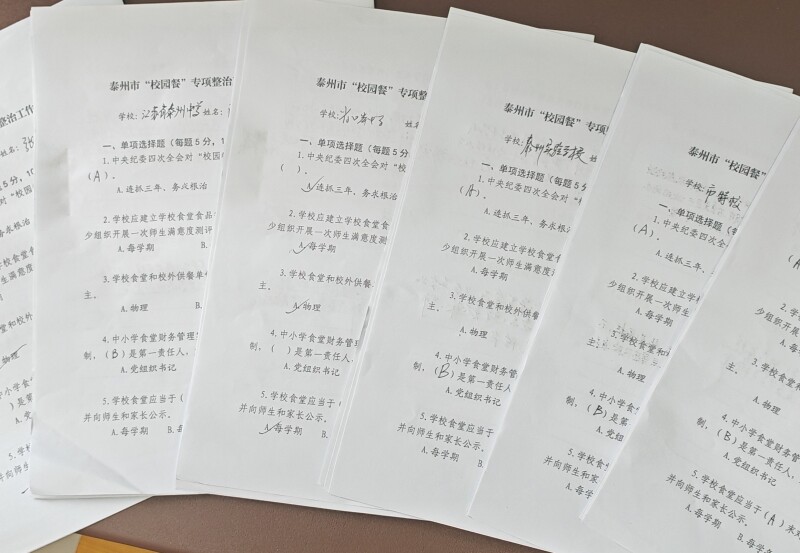 整治工作
姓名：张
5分，1
校园
务永根治
食堂食品
意度测
堂和校外
物理
小学食堂
）是第
A.党组
泰州市“校园餐”专项整治
学校：江苏省泰州中学 姓名：
一、单项选择题（每题 5 分，1
1.中央纪委四次全会对“校园
（A）。
A.连抓三年、务永根治
2.学校应建立学校食堂食品
少组织开展一次师生满意度测评
A.每学期 B.
3.学校食堂和校外供餐单
主。
A.物理 B.
4.中小学食堂财务管理
制，（B）是第一责任人，
A.党组织书记
5.学校食堂应当于（
并向师生和家长公示。
A.每学期 B.
泰州市“校园餐”专项整
学校： 姓
一、单项选择题（每题 5 分
1.中央纪委四次全会对“校
（ ）。
A.连抓三年、务永根治
2.学校应建立学校食堂食
少组织开展一次师生满意度测
A.每学期
3.学校食堂和校外供餐单
主。
A.物理
4.中小学食堂财务管理
制，（ ）是第一责任人，
A.党组织书记
5.学校食堂应当于（
并向师生和家长公示。
A.每学期 B.
泰州市“校园餐”专项
学校：泰州实验学校 姓
一、单项选择题（每题 5
1.中央纪委四次全会对“
（A）。
A.连抓三年、务永根
2.学校应建立学校食堂
少组织开展一次师生满意度
A.每学期
3.学校食堂和校外供餐
主。
A.物理
4.中小学食堂财务管
制，（B）是第一责任人
A.党组织书记
5.学校食堂应当于
并向师生和家长公示。
A.每学期
泰州市“校园餐”
学校：市特校
一、单项选择题（每
1.中央纪委四次全会
（A）。
A.连抓三年、
2.学校应建立学校
少组织开展一次师生满
A.每学期
3.学校食堂和
主。
A.物理
4.中小学食
制，（B）是第
A.党组织
5.学校食
并向师生和家
A.每学
（A
2.学
少组织
A.每
3.学校
主。
A.物理
4.中小学食堂财务管
制，（B）是第一责任人，
A.党组织书记
5.学校食堂应当于（A）末
并向师生和家长公示。
A.每学期 B.每学